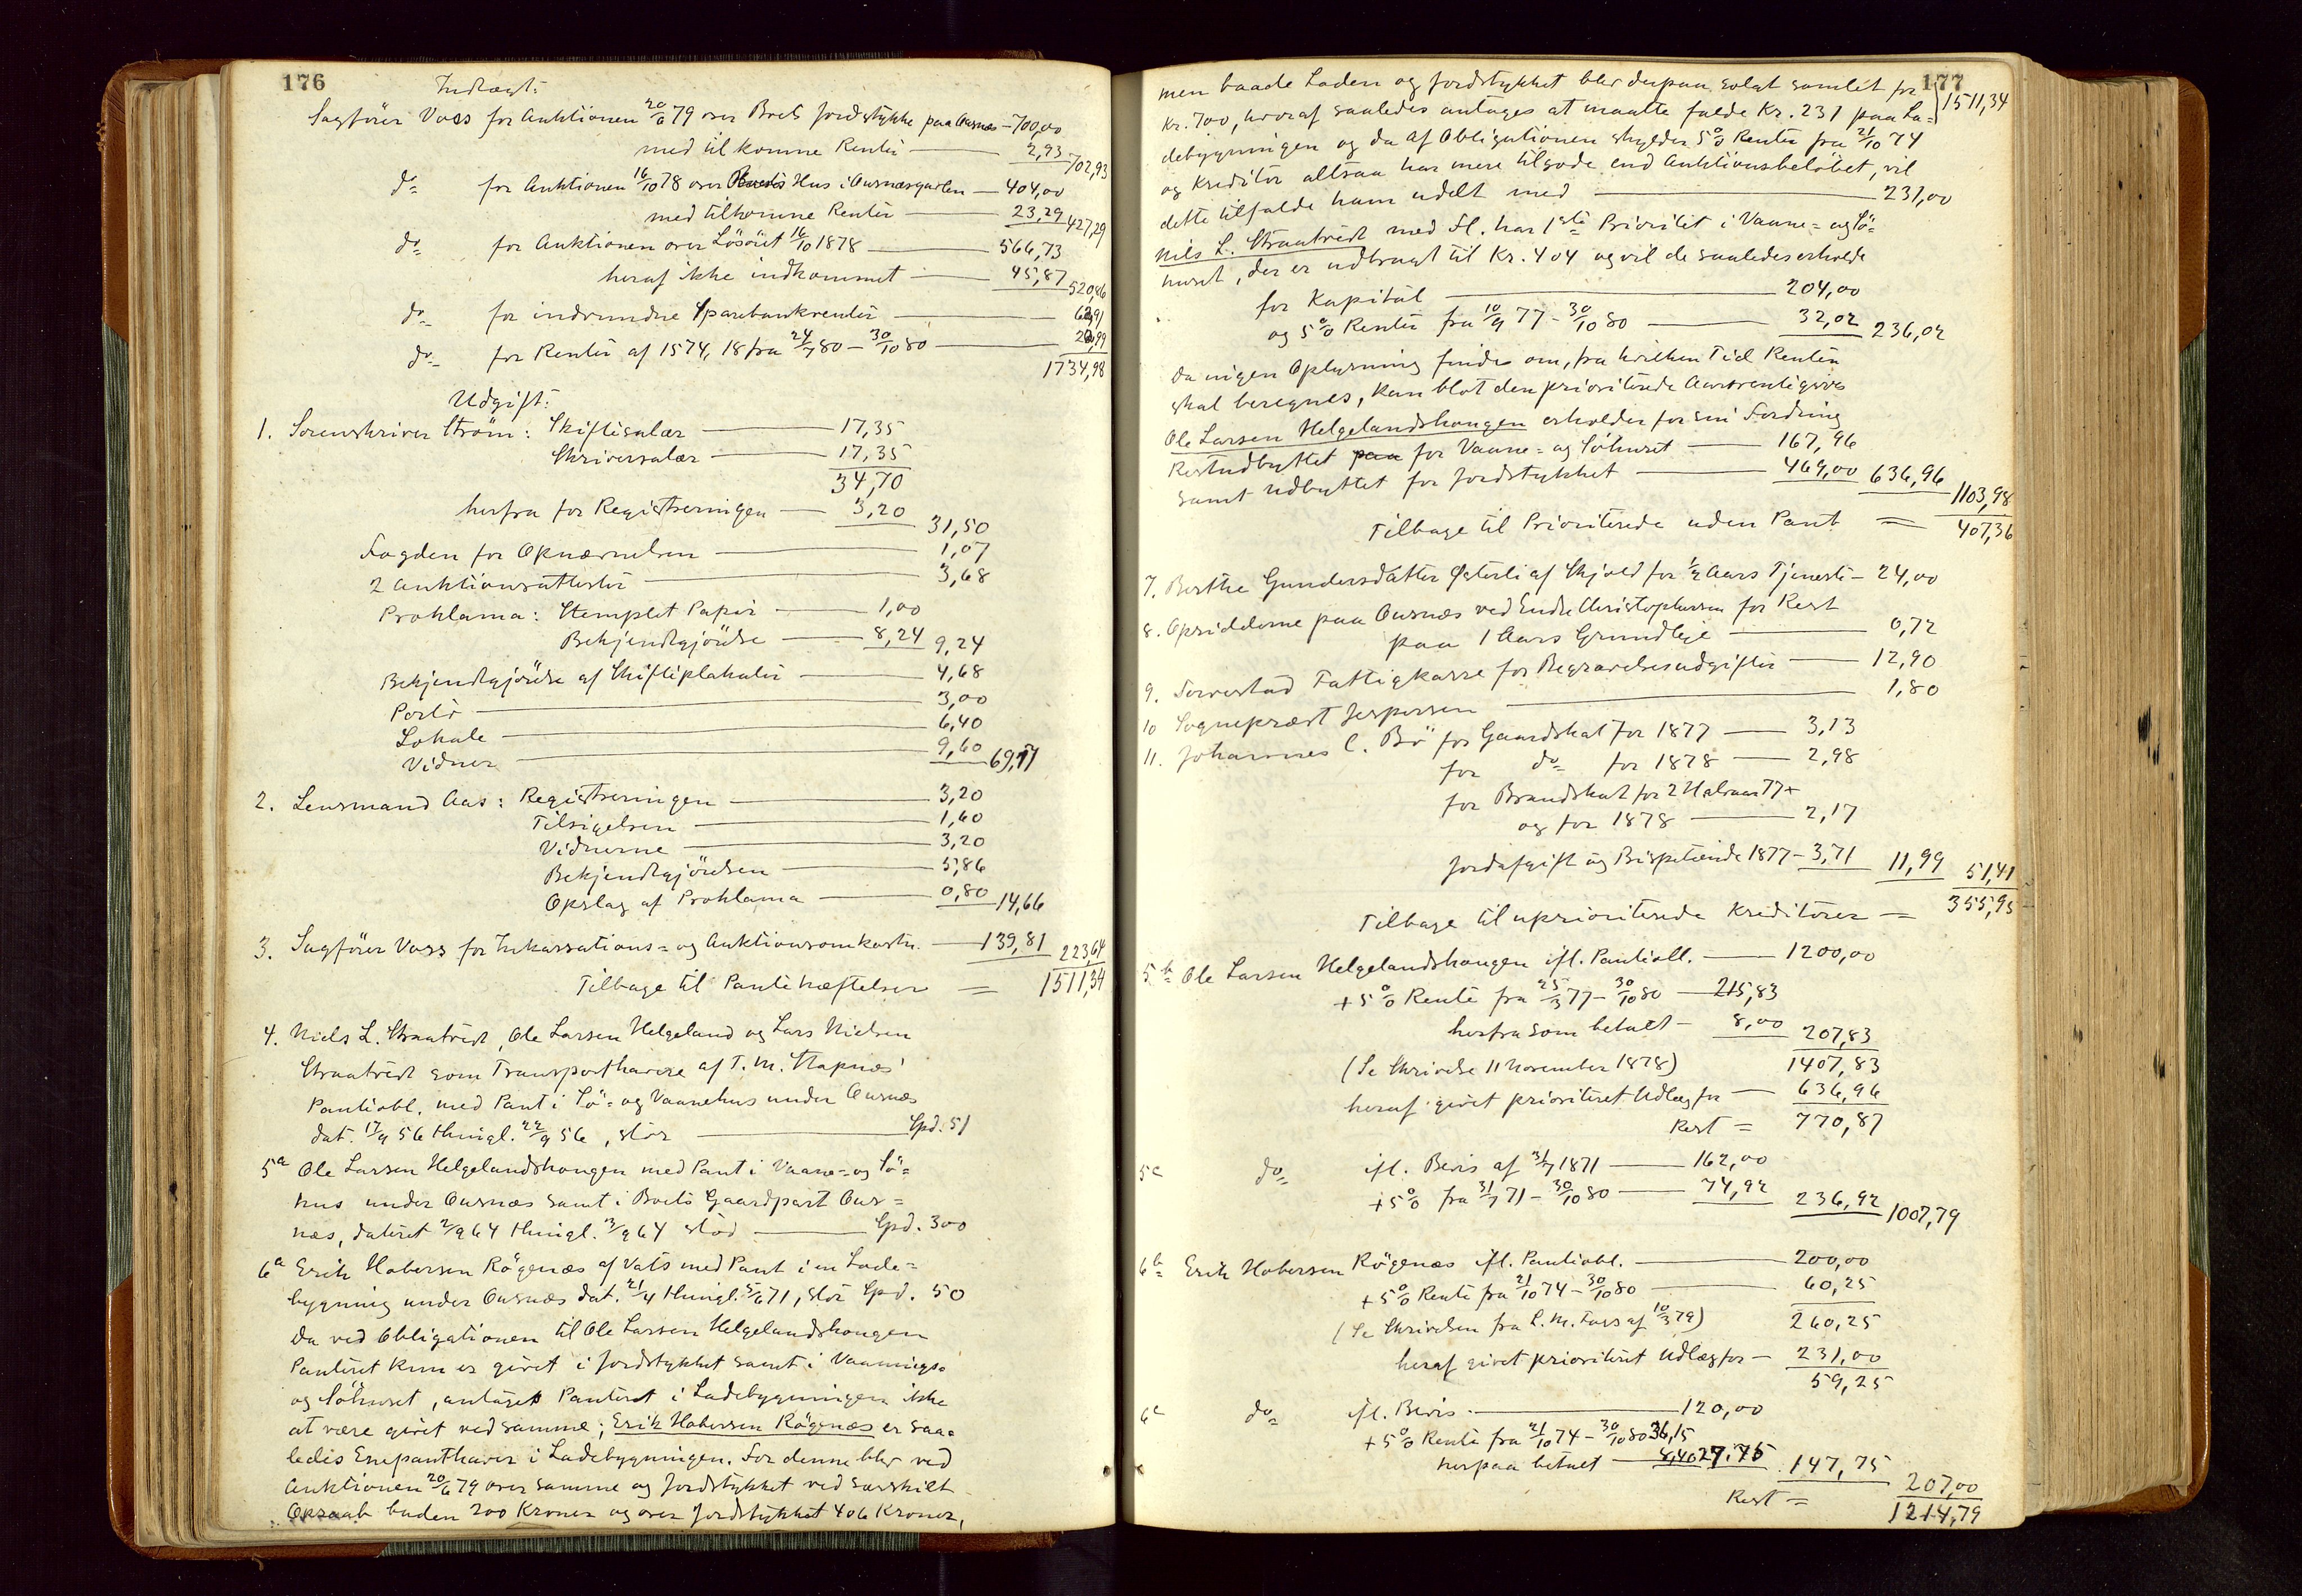 176
Indtægt:
Sagfører Voss for Auktionen 20/6 79 over Boets Jordstykke paa Ousnæs – 700,00
med tilkomne Renter — 2,93 702,93
do= for Auktionen 16/10 78 over Hus i Ousnæsgaarden — 404,00
med tilkomne Renter — 23,29 427,29
do= for Auktionen over Løsøret 16/10 1878 — 566,73
heraf ikke indkommet — 45,87 520,86
do= for indvundne Sparebankrenter — 62,91
do= for Renter af 1574,18 fra 24/7 80 – 30/10 80 — 20,99
1734,98
Udgift:
1. Sorenskriver Strøm: Skiftesalær — 17,35
Skriversalær — 17,35
34,70
herfra for Registreringen — 3,20 31,50
Fogden for Opnævnelsen — 1,07
2 Auktionsattester — 3,68
Proklama: Stemplet Papir — 1,00
Bekjendtgjørelse — 8,24 9,24
Bekjendtgjørelse af Skifteplakater — 4,68
Porto — 3,00
Lokale — 6,40
Vidner — 9,60 69,17
2. Lensmand Aas: Registreringen — 3,20
Tilsigelsen — 1,60
Vidnerne — 3,20
Bekjendtgjørelsen — 5,86
Opslag af Proklama — 0,80 14,66
3. Sagfører Voss for Inkassations= og Auktionsomkostn. — 139,81 223,64
Tilbage til Pantehæftelser = 1511,34
4. Niels L. Straatveit, Ole Larsen Helgeland og Lars Nielsen
Straatveit som Transporthavere af T. M. Stapnæs'
Panteobl. med Pant i Sø= og Vaanehus under Ousnæs
dat. 17/9 56 thingl. 22/9 56, stor — Spd. 51
5a Ole Larsen Helgelandshougen med Pant i Vaane= og Sø=
hus under Ousnæs samt i Boets Gaardpart Ous=
næs, dateret 2/9 64 thingl. 3/9 64 stor — Spd. 300
6a Erik Haversen Røgenæs af Vats med Pant i en Lade=
bygning under Ousnæs dat. 21/4 thingl. 5/6 71, stor Spd. 50
Da ved Obligationen til Ole Larsen Helgelandshougen
Panteret kun er givet i Jordstykket samt i Vaanings=
og Søhuset, antages Panteret i Ladebygningen ikke
at være givet ved samme; Erik Haversen Røgenæs er saa=
ledes Enepanthaver i Ladebygningen. For denne blev ved
Auktionen 20/6 79 over samme og Jordstykket ved særskilt
Opraab buden 200 Kroner og over Jordstykket 406 Kroner,
177
men baade Laden og Jordstykket blev derpaa solgt samlet for 1511,34
Kr. 700, hvoraf saaledes antages at maatte falde Kr. 231 paa La=
debygningen og da af Obligationen skyldes 5% Renter fra 21/10 74
og Kreditor altsaa har mere tilgode end Auktionsbeløbet, vil
dette tilfalde ham udelt med — 231,00
Nils L. Straatveit med Fl. har 1ste Prioritet i Vaane= og Sø=
huset, der er udbragt til Kr. 404 og vil de saaledes erholde
for Kapital — 204,00
og 5% Renter fra 10/9 77 – 30/10 80 — 32,02 236,02
Da ingen Oplysning findes om, fra hvilken Tid Renten
skal beregnes, kan blot den prioriterede Aarsrente gives
Ole Larsen Helgelandshougen erholder for sin Fordring
Restudbyttet paa for Vaane= og Søhuset — 167,96
samt Udbyttet for Jordstykket — 469,00 636,96 1103,98
Tilbage til Prioriterede uden Pant = 407,36
7. Berthe Gundersdatter Østerli af Skjold for 1/2 Aars Tjeneste – 24,00
8. Opsidderne paa Ousnæs ved Endre Christophersen for Rest
paa 1 Aars Grundleje — 0,72
9. Torvestad Fattigkasse for Begravelsesudgifter — 12,90
10 Sogneprest Jespersen — 1,80
11. Johannes C. Bø for Gaardskat for 1877 — 3,13
for do= for 1878 — 2,98
for Brandskat for 2 Halvaar 77
og for 1878 — 2,17
Jordafgift og Bispetiende 1877 – 3,71 11,99 51,41
Tilbage til uprioriterede Kreditorer = 355,95
5b= Ole Larsen Helgelandshougen ifl. Panteobl. — 1200,00
+ 5% Rente fra 25/3 77 – 30/10 80 — 215,83
herfra som betalt – 8,00 207,83
(Se Skrivelse 11 November 1878) 1407,83
heraf givet prioriteret Udlæg for — 636,96
Rest = 770,87
5c do= ifl. Bevis af 31/7 1871 — 162,00
+ 5% fra 31/7 71 – 30/10 80 — 74,92 236,92 1007,79
6b= Erik Haversen Røgenæs ifl. Panteobl. — 200,00
+ 5% Rente fra 21/10 74 – 30/10 80 — 60,25
(Se Skrivelsen fra L. M. Faas af 10/3 79) 260,25
heraf givet prioriteret Udlæg for — 231,00
59,25
6c do= ifl. Bevis — 120,00
+ 5% Rente fra 21/10 74 – 30/10 80 36,15
herpaa betalt — 8,40 27,75 147,75 207,00
Rest = 1214,79